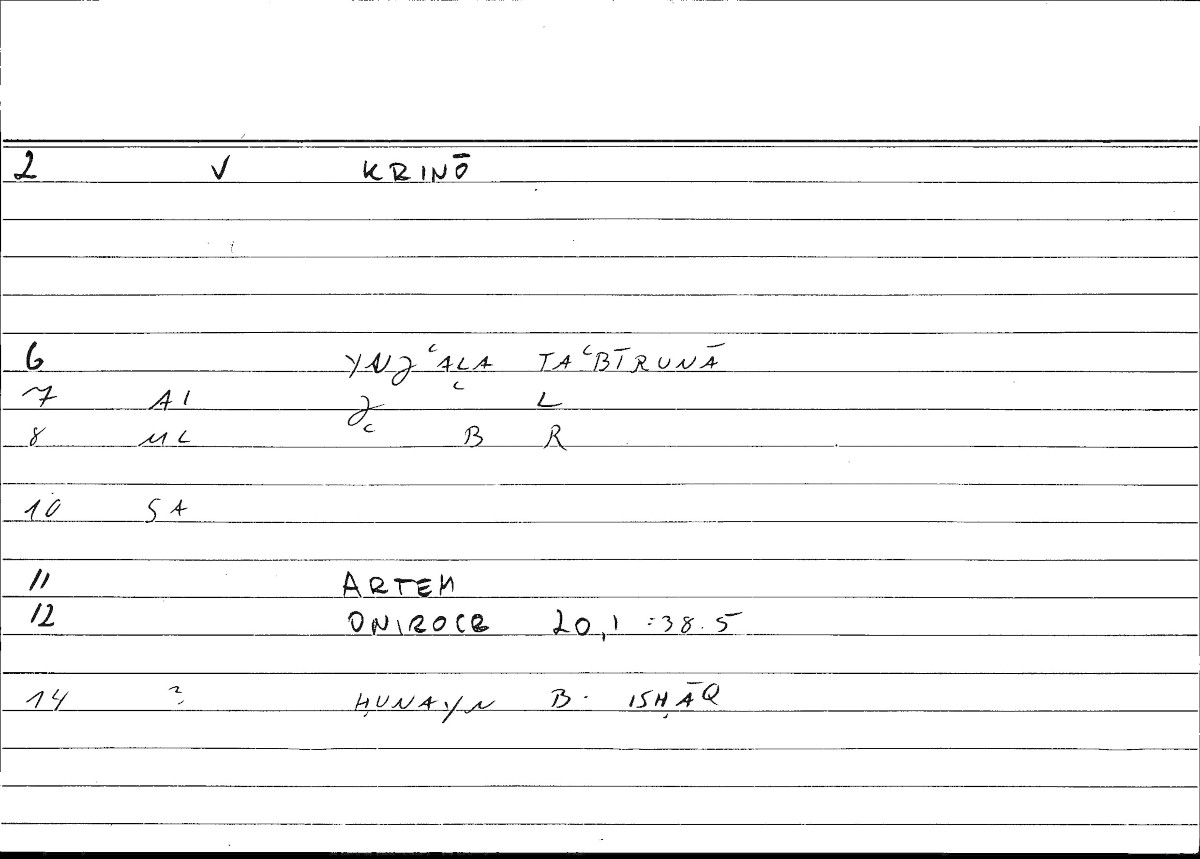 2 V KRINŌ
6 YNJʿALA TAʿBĪRUNĀ
7 AI J L
8 ML B R
10 SA
11 ARTEM
12 ONIROCR 20,1 :38.5
14 ? ḤUNAYN B. ISḤĀQ